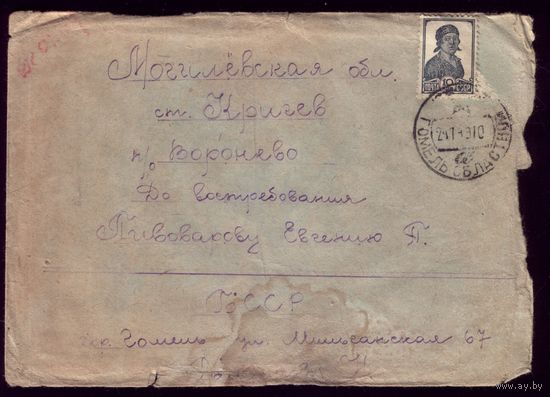 Могилёвская обл.
ст. Кричев
п/о Воронево
До востребования
Пивоварову Евгению П.
БССР
гор. Гомель ул. 67
10
ПОЧТА СССР
ГОМЕЛЬ ОБЛАСТНОЙ
www.ay.by